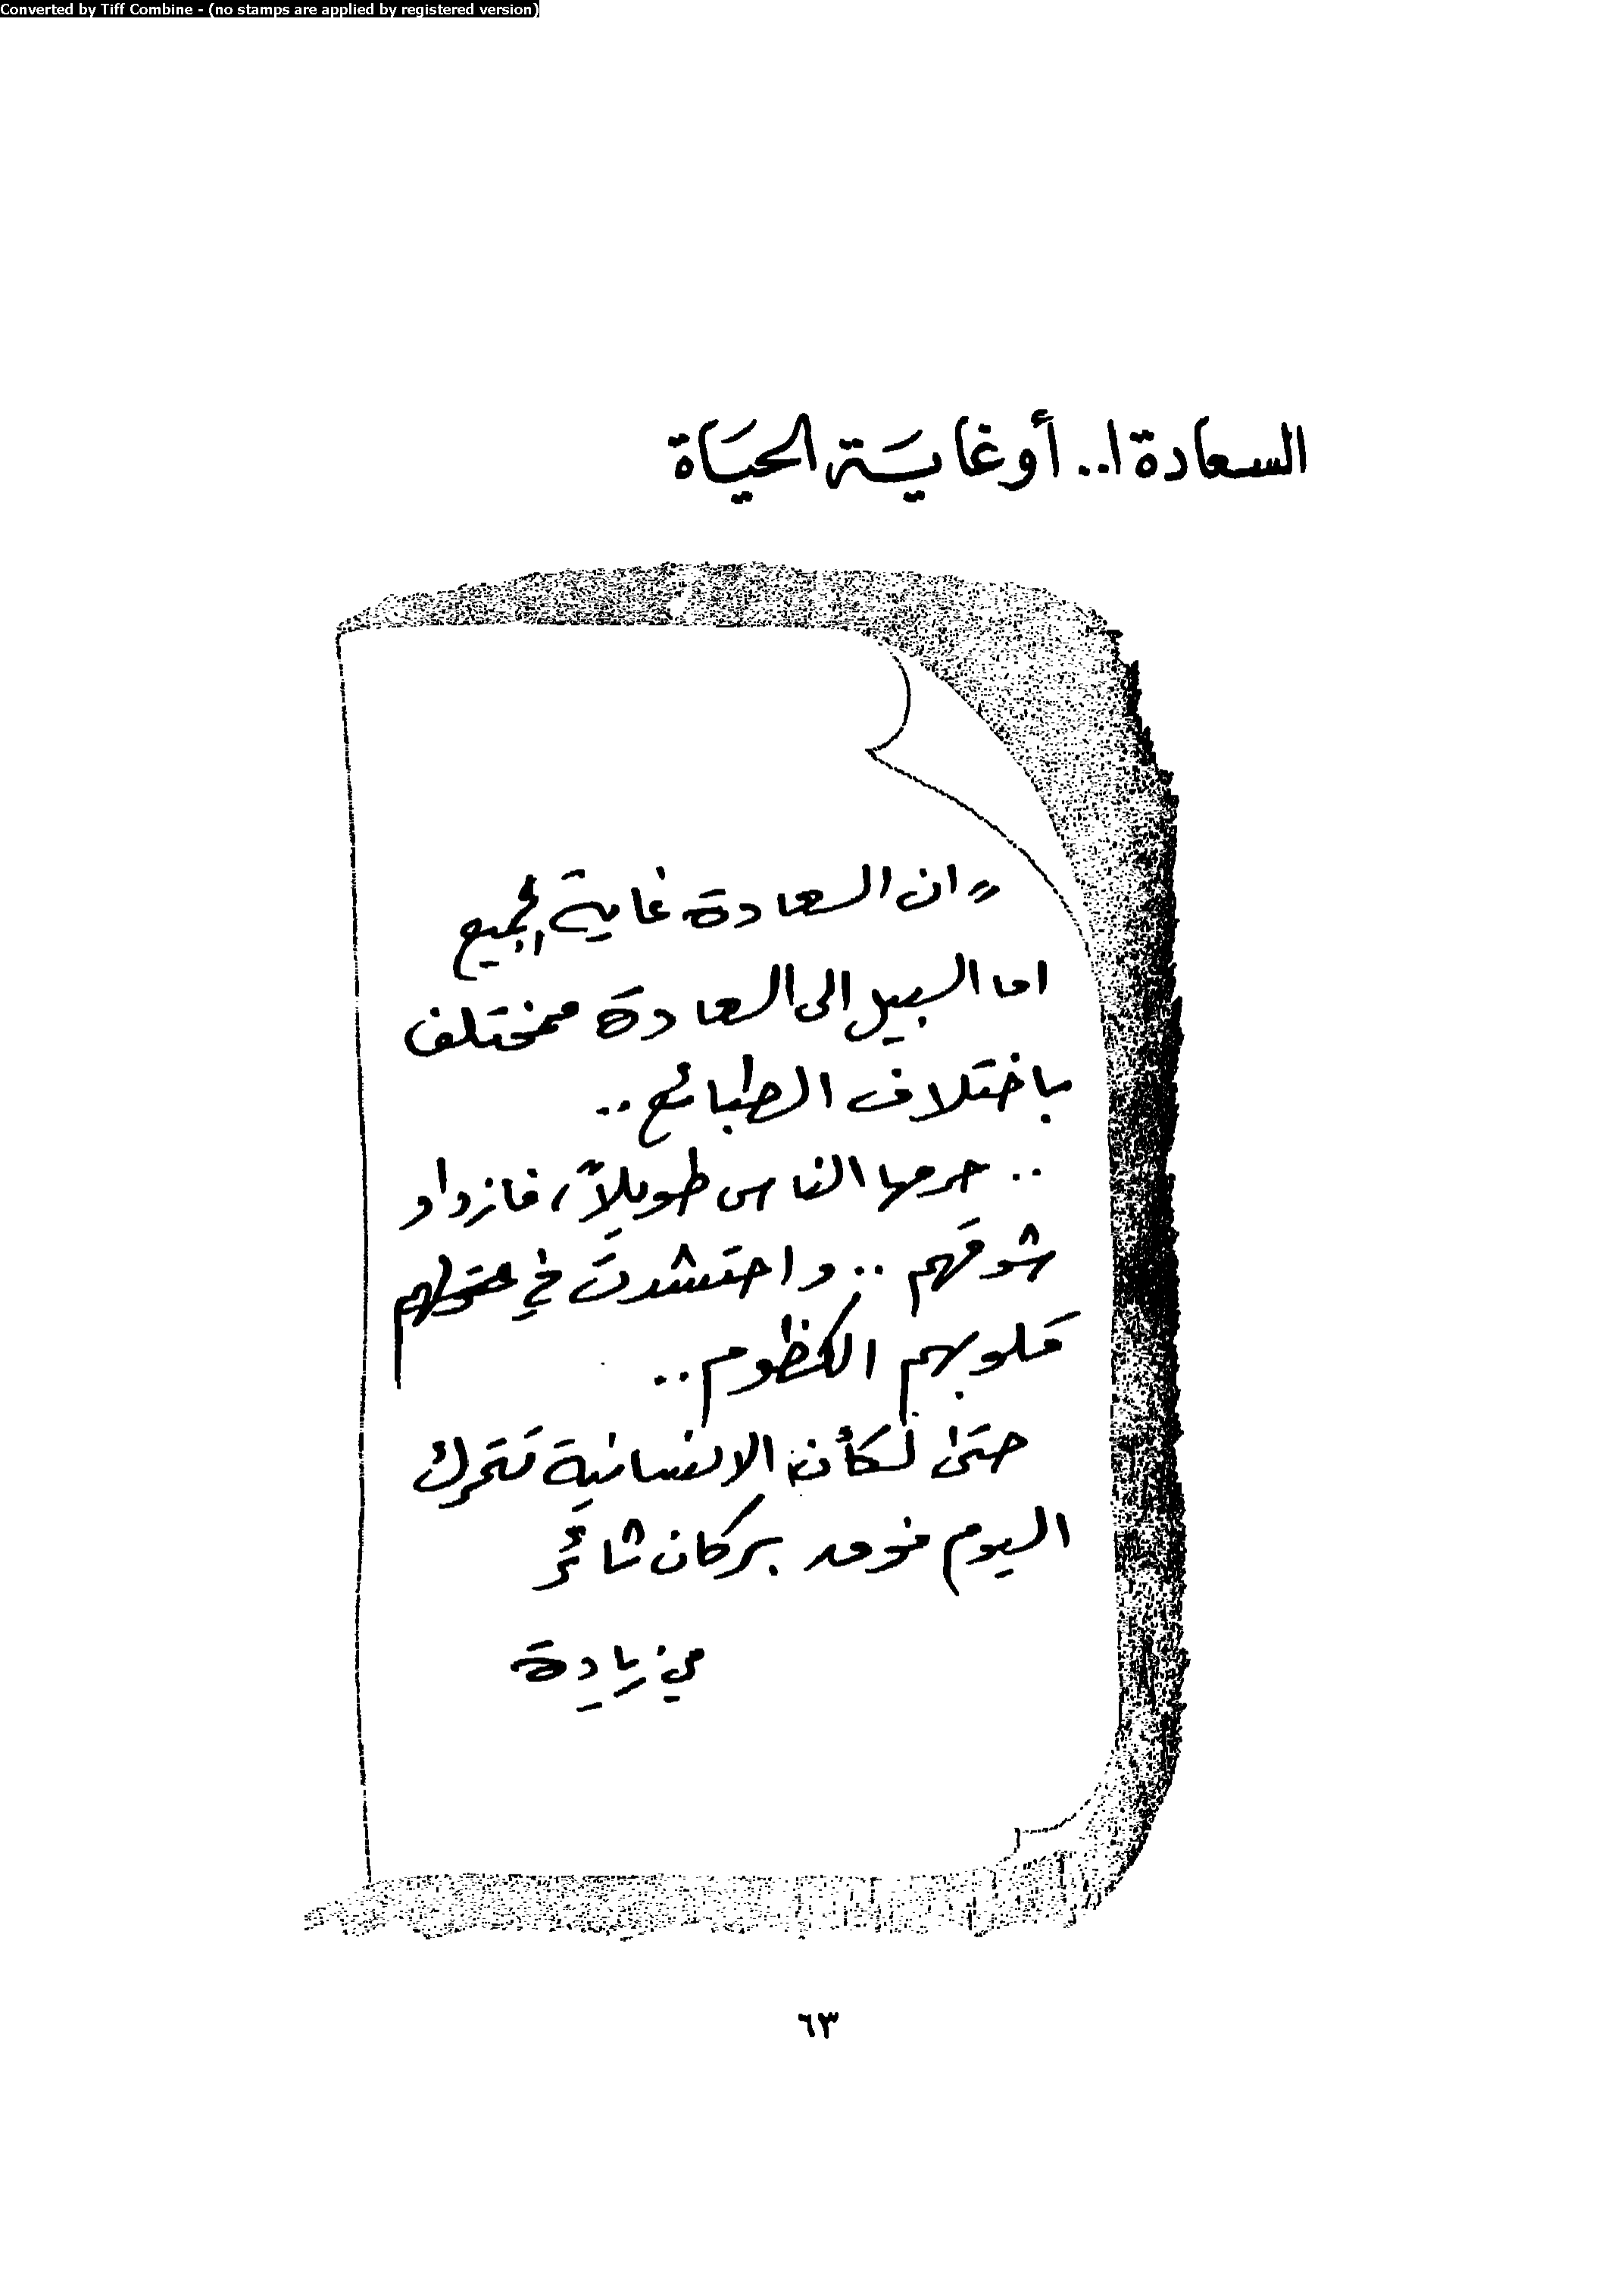 Converted by Tiff Combine - (no stamps are applied by registered version)
السعادة !.. أو غاية الحياة
» ان السعادة غاية الجميع
اما السبيل الى السعادة فمختلف
باختلاف الطبائع ..
.. حرمها الناس طويلاً، فازداد
شوقهم .. واحتشدت في
قلوبهم الكظوم ..
حتى لكأن الانسانية تتحرك
اليوم فوق بركان ثائر
مي زيادة
٦٣